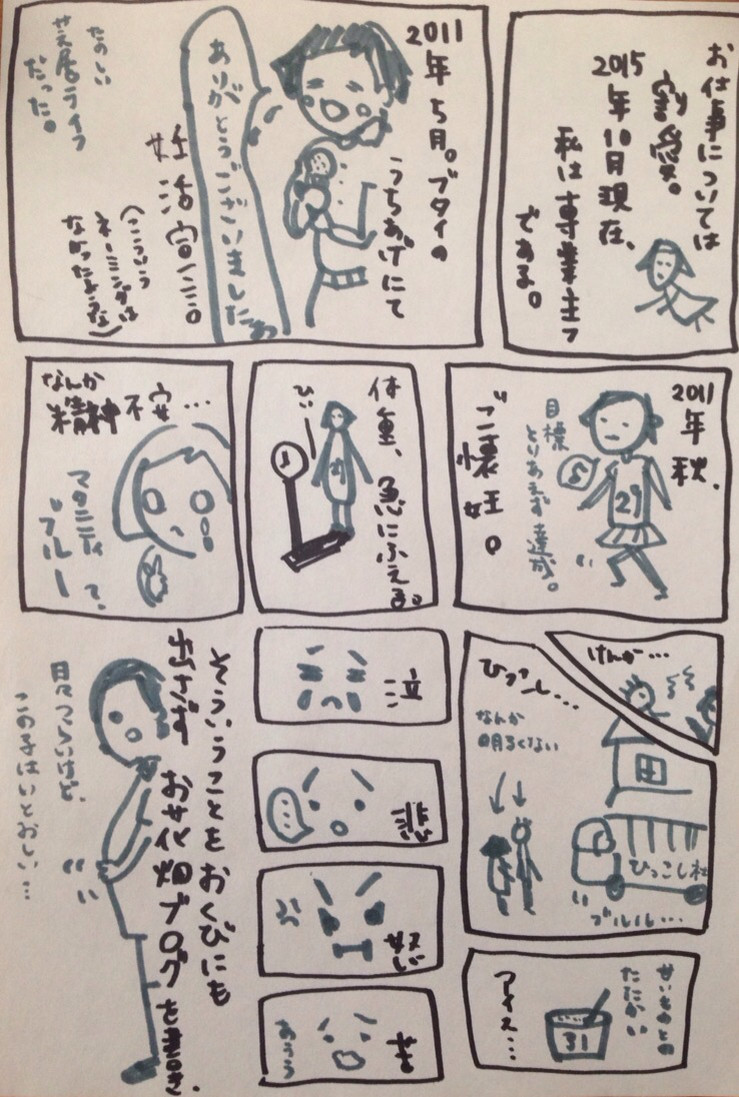 お仕事については
割愛。
2015
年10月現在、
私は専業主フ
である。
2011
年5月。ブタイの
うちあげにて
ありがとうございました
妊活宣言。
(こういう
ネーミングは
なかったような)
たのしい
芝居ライフ
だった。
2011
年秋、
29
目標
とりあえず達成。
ご懐妊。
体重、急にふえる。
ひぃー
なんか
精神不安…
マタニティ
ブルー
て、
けんか…
ひっこし…
なんか
明るくない
ひっこし社
ブルル…
甘いものとの
たたかい
31
アイス…
泣
悲
怒
苦
あうう
そういうことをおくびにも
出さず お花畑ブログを書き、
日々つらいけど、
この子はいとおしい…